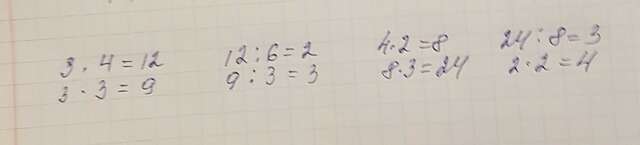 3 · 4 = 12
3 · 3 = 9
12 : 6 = 2
9 : 3 = 3
4 · 2 = 8
8 · 3 = 24
24 : 8 = 3
2 · 2 = 4